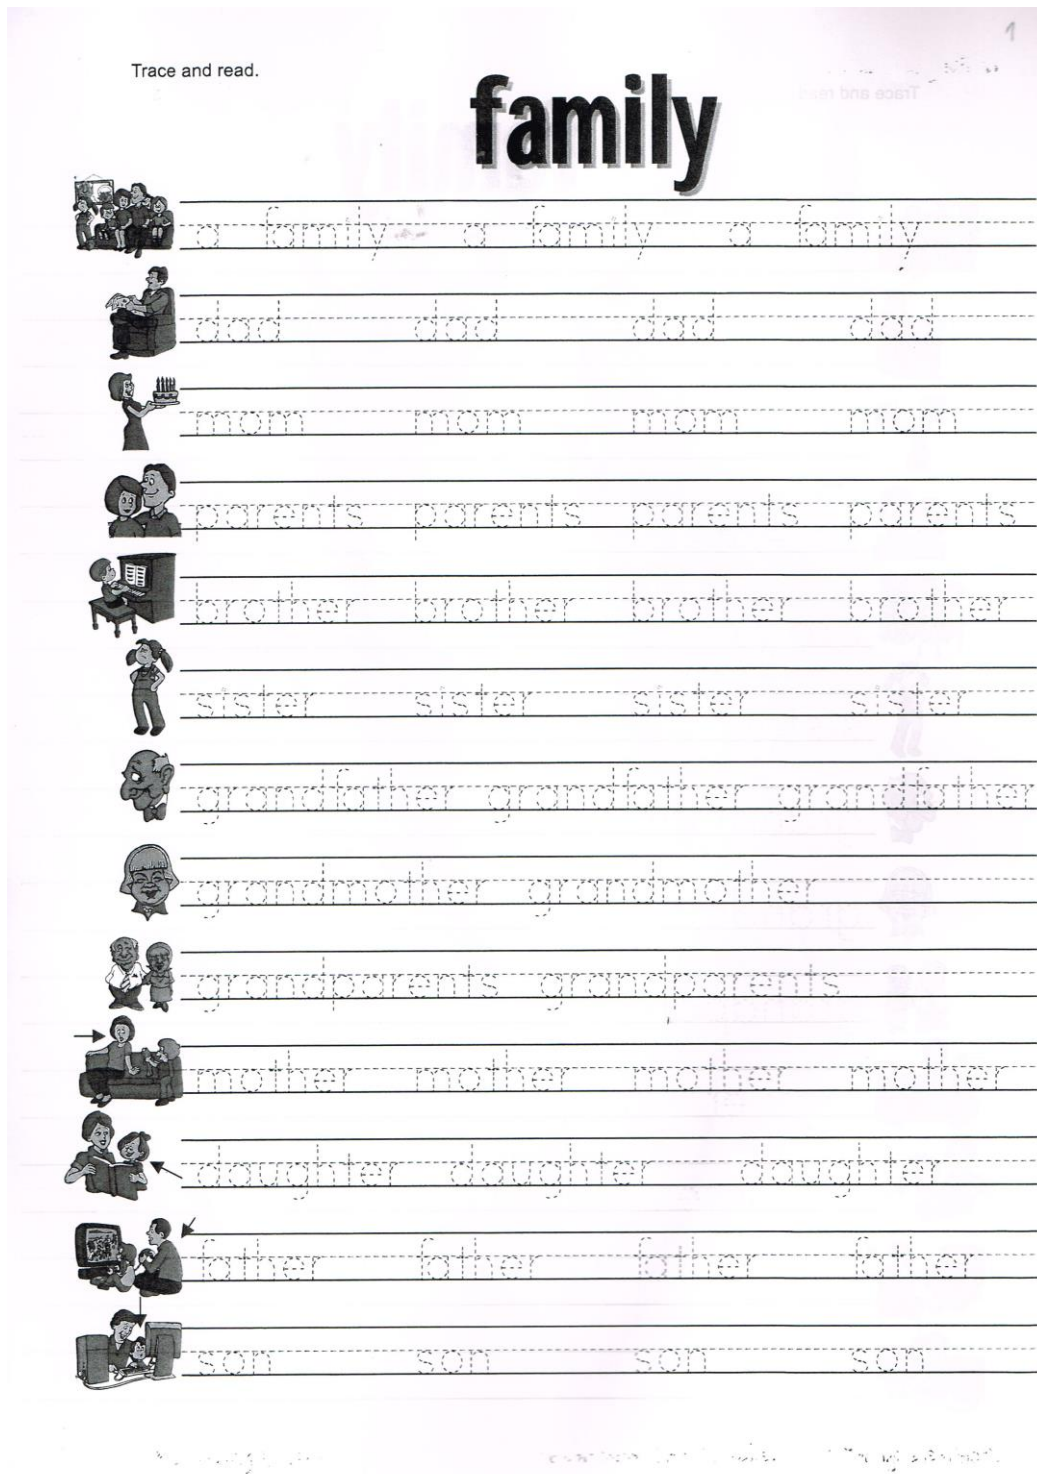 1
Trace and read.
family
a family a family a family
dad dad dad dad
mom mom mom mom
parents parents parents parents
brother brother brother brother
sister sister sister sister
grandfather grandfather grandfather
grandmother grandmother
grandparents grandparents
mother mother mother mother
daughter daughter daughter
father father father father
son son son son